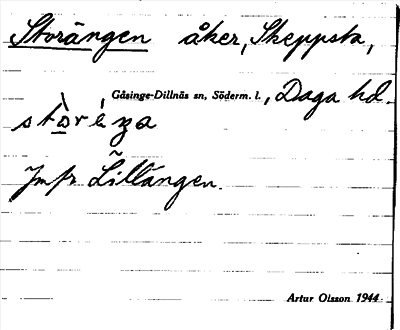 Storängen åker, Skeppsta,
Gåsinge-Dillnäs sn, Söderm. l., Daga hd.
Jmfr Lillängen.
Artur Olsson 1944